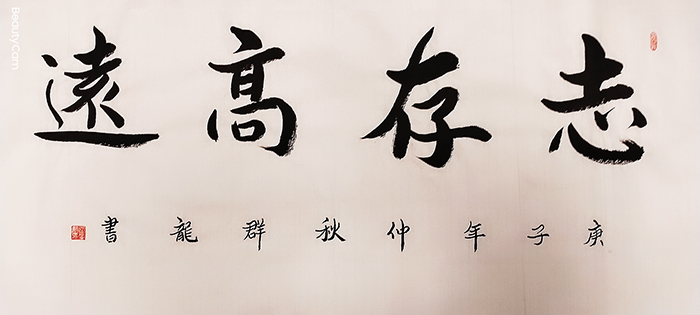 志存高遠
庚子年仲秋群龍書
BeautyCam